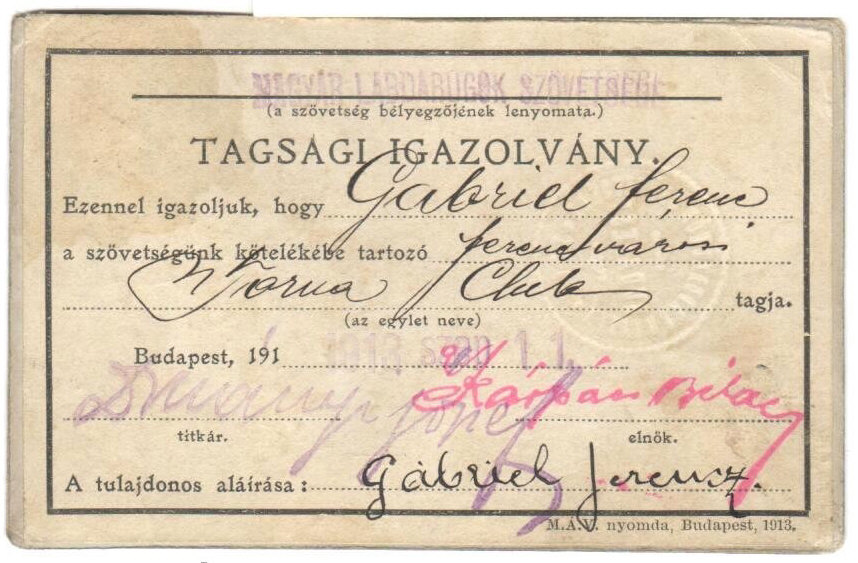 MAGYAR LABDARUGÓK SZÖVETSÉGE
(a szövetség bélyegzőjének lenyomata.)
TAGSÁGI IGAZOLVÁNY.
Ezennel igazoljuk, hogy Gabriel Ferenc
a szövetségünk kötelékébe tartozó ferencvárosi
Torna Club tagja.
(az egylet neve)
Budapest, 191
Kárpáti Béla
titkár. elnök.
A tulajdonos aláírása: Gábriel Ferencz.
M.Á.V. nyomda, Budapest, 1913.